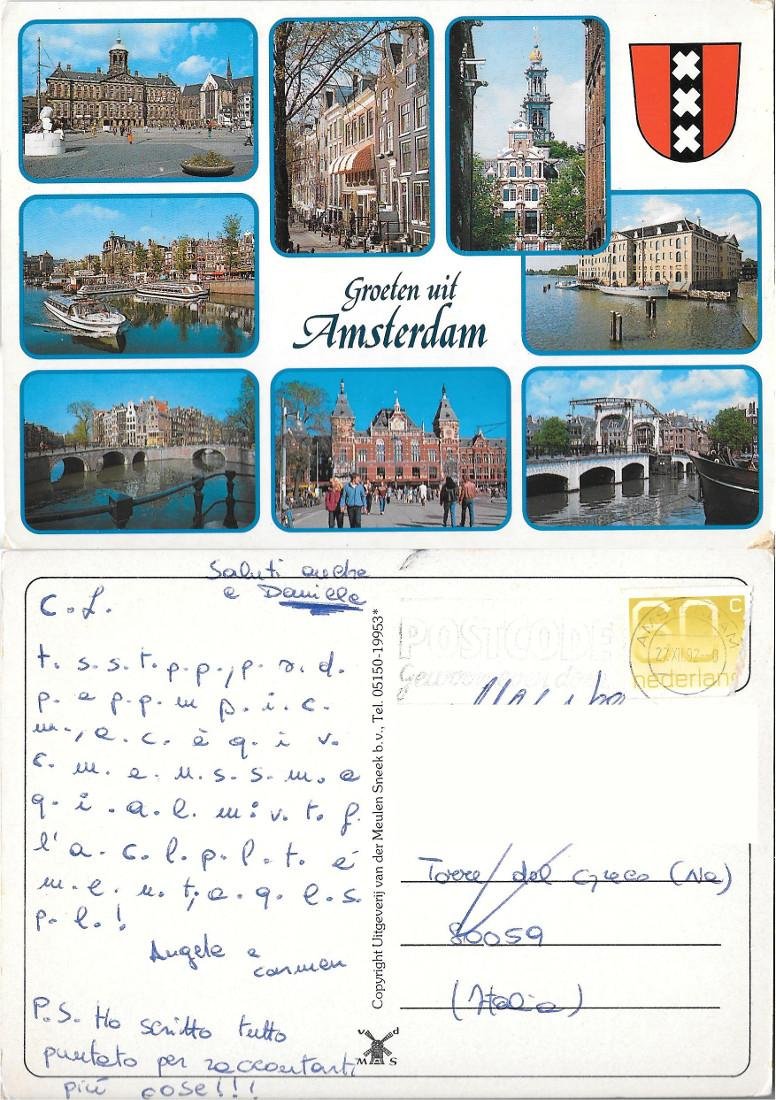 Groeten uit
Amsterdam
Saluti anche
a Daniele
C. L.
t. s. s. t. p. p., p. a. d.
p. a p. p. m p. i. c.
m., a. c. è q. i v.
c. m. a. u. s. s. m. a
q. i. a. l. m. v. t. f.
l'a. c. l. p. l. t. e'
m. e. u t., a. q. l. s.
p. l.!
Angela e
carmen
P.S. Ho scritto tutto
puntato per raccontarti
più cose!!!
Copyright Uitgeverij van der Meulen Sneek b.v., Tel. 05150-19953*
v d
M S
POSTCODE
Gewoon
AM AM
27.XII.92
60 c
nederland
Torre del Greco (Na)
80059
(Italia)